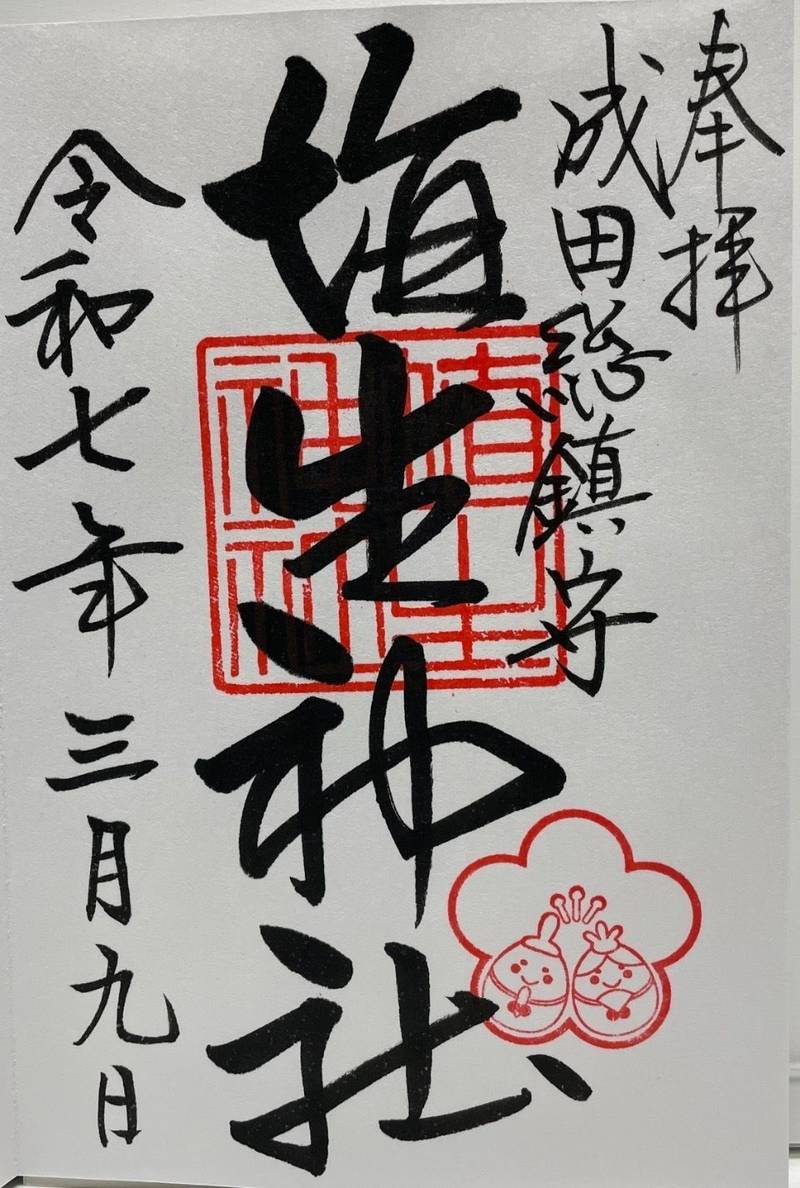 奉拝
成田総鎮守
埴生神社
埴生
神社
令和七年三月九日